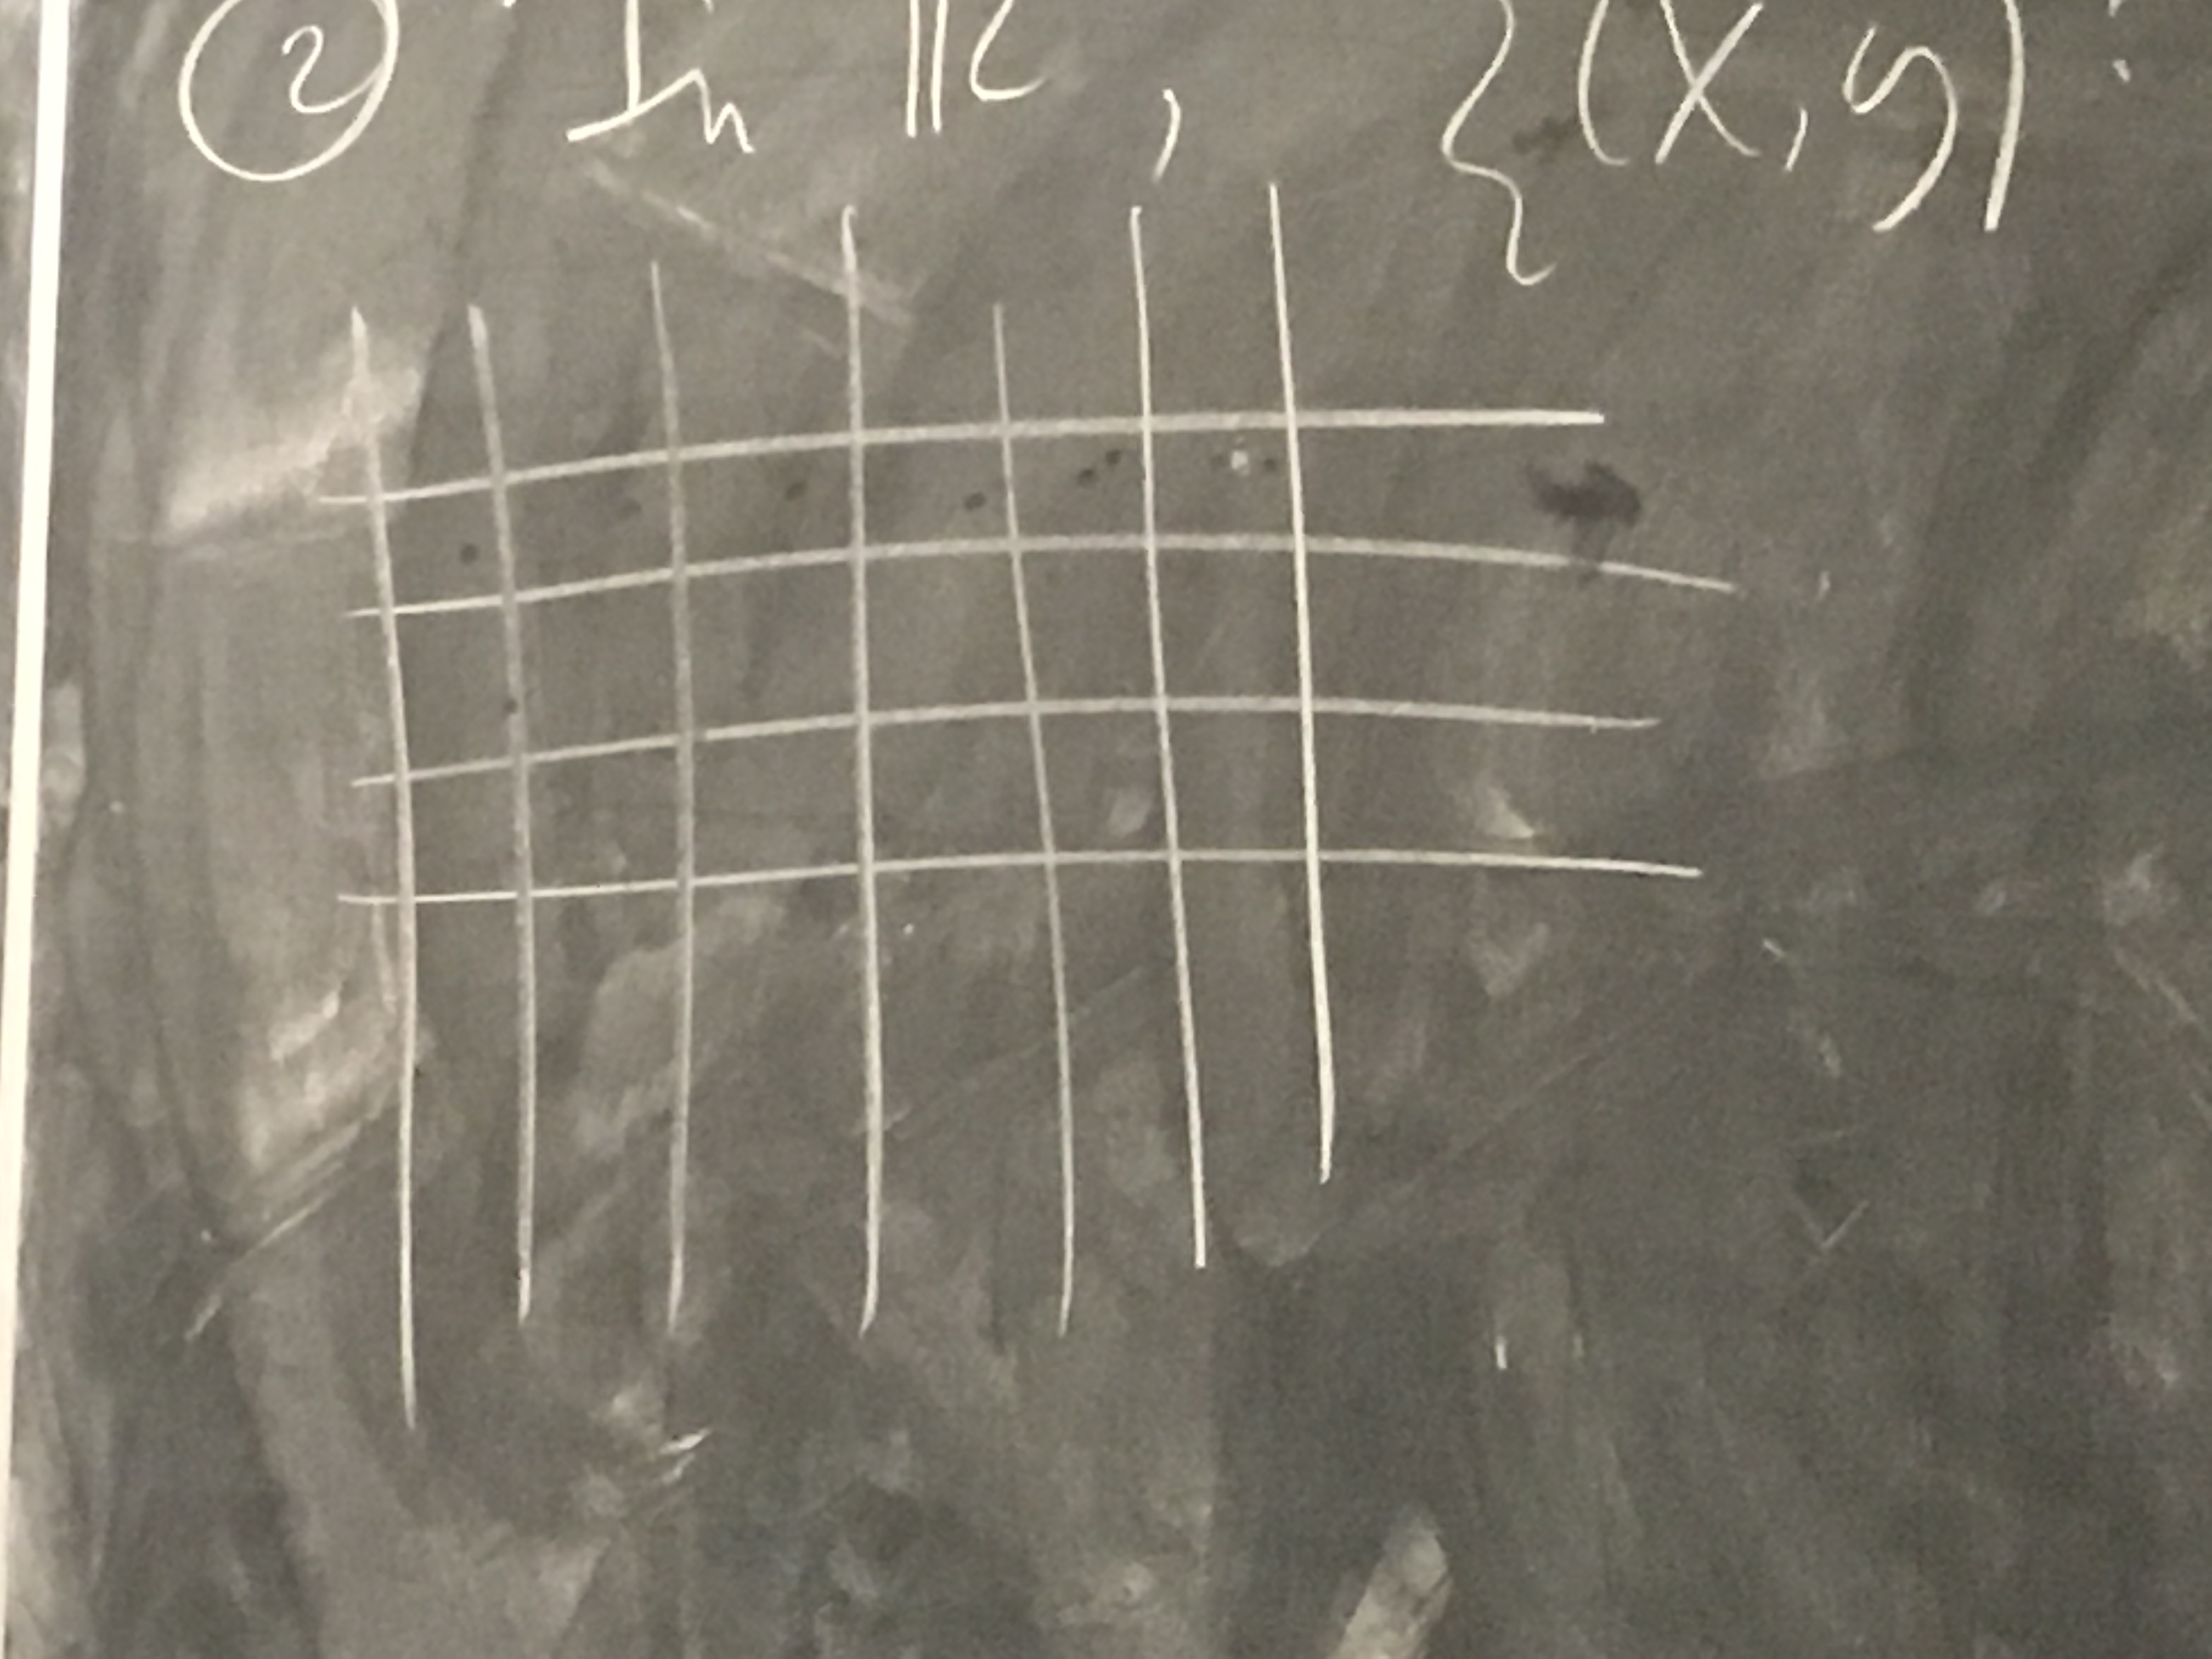 ② In ℝ, {(x,y):